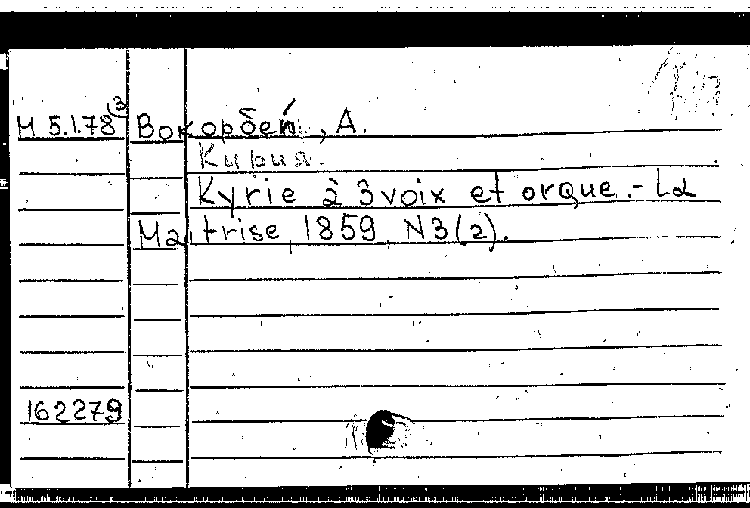 М 5.1.78(3) Вокорбей, А.
Кирия.
Kyrie à 3 voix et orque. - La
Maitrise, 1859, N3(2).
162279